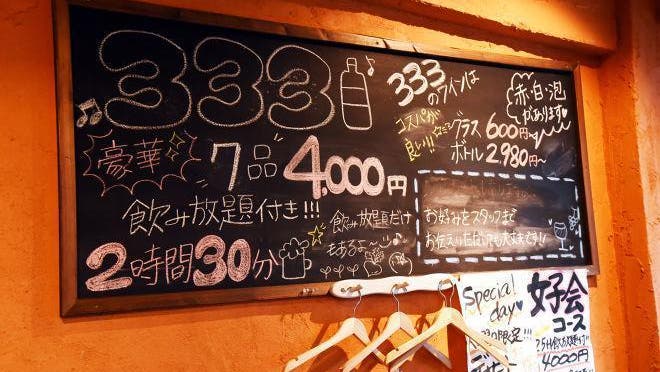 333
豪華 7品 4,000円
飲み放題付き!!!
2時間30分
飲み放題だけ
もあるよ〜
333
のワインは
コスパが
良い!!
赤・白・泡
があります
グラス 600円〜
ボトル 2,980円〜
お好みをスタッフまで
お伝えいただいても大丈夫です!!
Special
day
女子会
コース
4000円